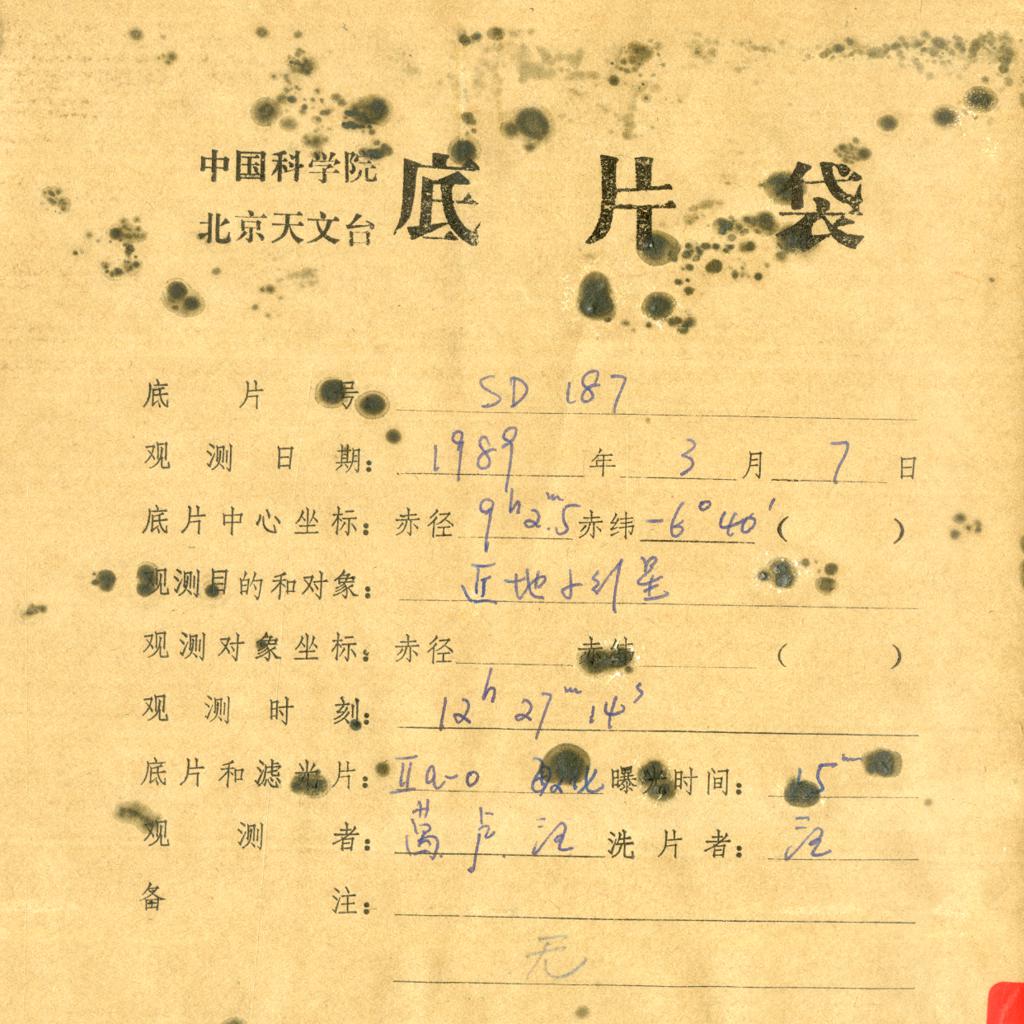 中国科学院
北京天文台
底片袋
底片号 SD 187
观测日期： 1989 年 3 月 7 日
底片中心坐标： 赤径 9h 2m.5 赤纬 -6°40′ ( )
观测目的和对象： 近地小行星
观测时刻： 12h 27m 14s
观测对象坐标： 赤径 赤纬 ( )
底片和滤光片： IIa-O 敏化 曝光时间： 15m
观测者： 卢 汪 洗片者： 汪
备注：
无